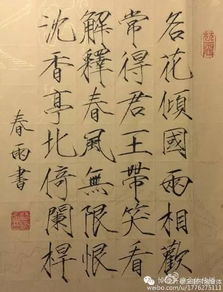 名花傾國雨相歡
常得君王帶笑看
解釋春風無限恨
沈香亭北倚闌桿
春雨書
weibo.com/u/1776275111